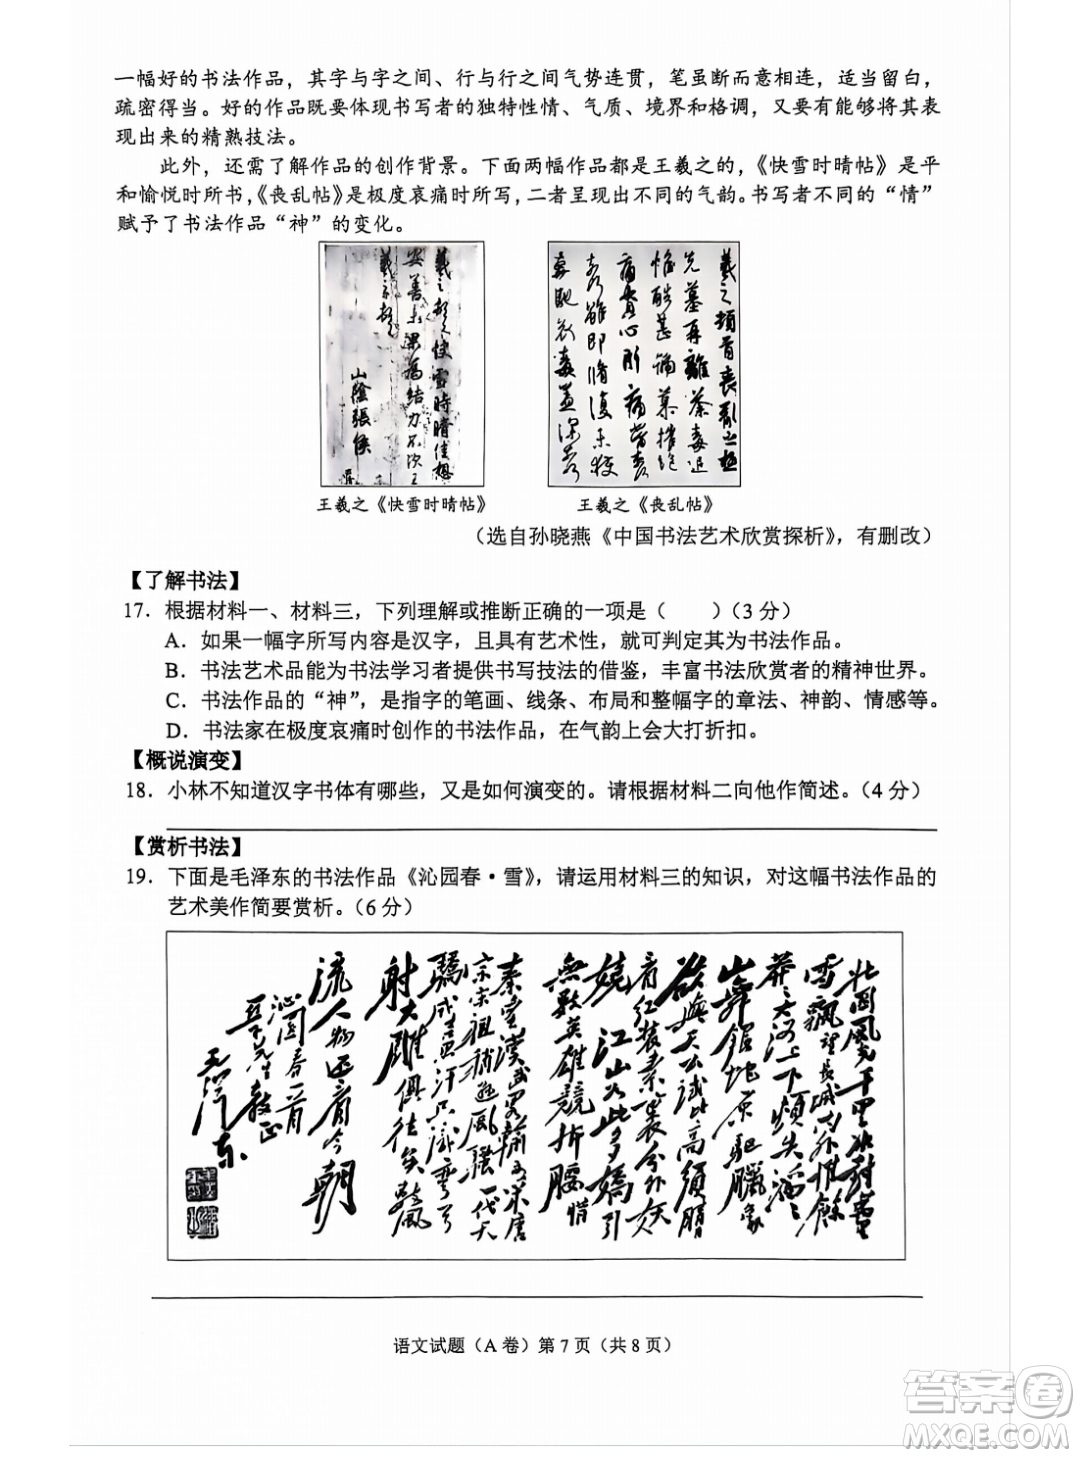 一幅好的书法作品，其字与字之间、行与行之间气势连贯，笔虽断而意相连，适当留白，
疏密得当。好的作品既要体现书写者的独特性情、气质、境界和格调，又要有能够将其表
现出来的精熟技法。
此外，还需了解作品的创作背景。下面两幅作品都是王羲之的，《快雪时晴帖》是平
和愉悦时所书，《丧乱帖》是极度哀痛时所写，二者呈现出不同的气韵。书写者不同的“情”
赋予了书法作品“神”的变化。
羲之頓首快雪時晴佳想
安善未果為結力不次王
羲之頓首
山陰張侯
羲之頓首喪亂之極
先墓再離荼毒追
惟酷甚號慕摧絕
痛貫心肝痛當奈
何奈何雖即脩復未獲
奔馳哀毒益深奈
王羲之《快雪时晴帖》
王羲之《丧乱帖》
（选自孙晓燕《中国书法艺术欣赏探析》，有删改）
【了解书法】
17．根据材料一、材料三，下列理解或推断正确的一项是（　　）（3 分）
A．如果一幅字所写内容是汉字，且具有艺术性，就可判定其为书法作品。
B．书法艺术品能为书法学习者提供书写技法的借鉴，丰富书法欣赏者的精神世界。
C．书法作品的“神”，是指字的笔画、线条、布局和整幅字的章法、神韵、情感等。
D．书法家在极度哀痛时创作的书法作品，在气韵上会大打折扣。
【概说演变】
18．小林不知道汉字书体有哪些，又是如何演变的。请根据材料二向他作简述。（4 分）
【赏析书法】
19．下面是毛泽东的书法作品《沁园春·雪》，请运用材料三的知识，对这幅书法作品的
艺术美作简要赏析。（6 分）
北國風光千里冰封萬里
雪飄望長城內外惟餘
莽莽大河上下頓失滔滔
山舞銀蛇原馳臘象
欲與天公試比高須晴
日看紅裝素裹分外妖
嬈江山如此多嬌引
無數英雄競折腰惜
秦皇漢武略輸文采唐
宗宋祖稍遜風騷一代天
驕成吉思汗只識彎弓
射大雕俱往矣數風
流人物還看今朝
沁園春一首
毛澤東
语文试题（A 卷）第 7 页（共 8 页）
答案卷
MXQE.COM